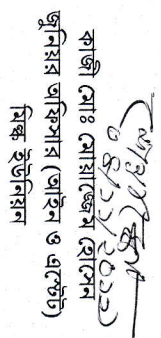 কাজী মোঃ মোয়াজ্জেম হোসেন
জুনিয়র অফিসার (আইন ও এস্টেট)
মিল্ক ইউনিয়ন